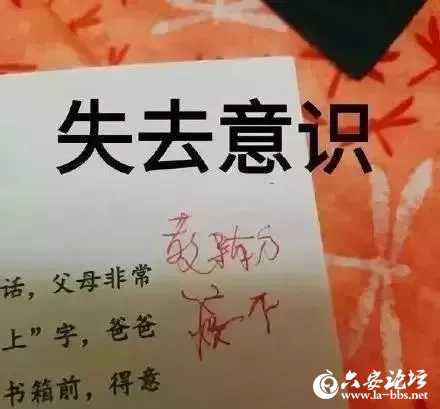 失去意识
话，父母非常
上”字，爸爸
书箱前，得意
六安论坛
www.la-bbs.net